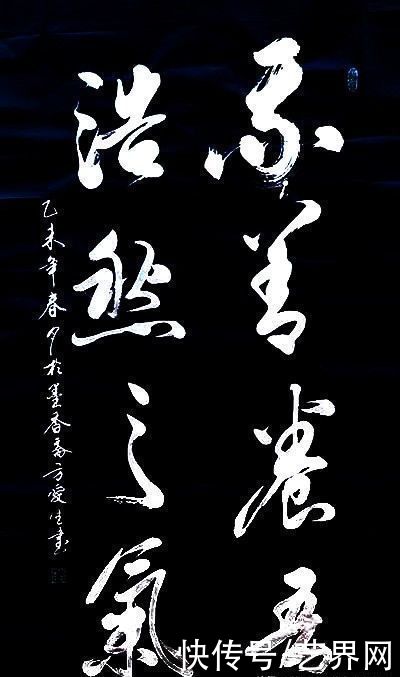 我善養吾
浩然之氣
乙未年春夕於墨香斎方愛生書
快传号/艺界网